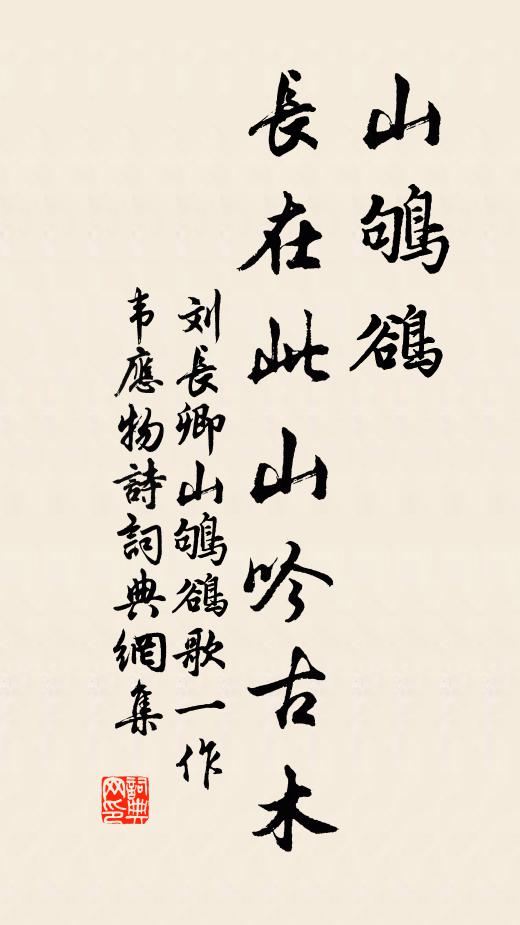 山鴝鵒
長在此山吟古木
刘長卿山鴝鵒歌一作
韦應物詩詞典網集
詞典
网印